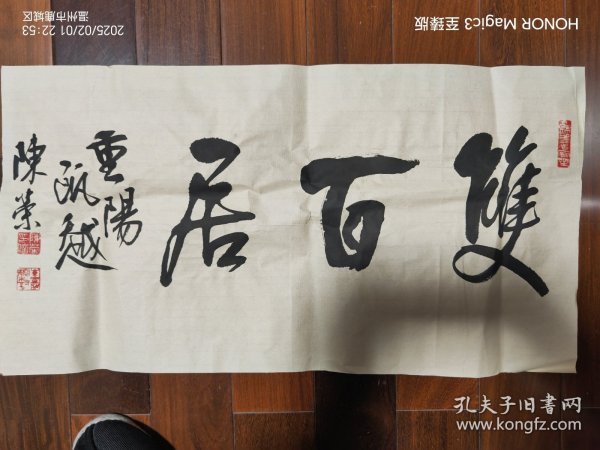 HONOR Magic3 至臻版
2025/02/01 22:53
温州市鹿城区
雙百居
重陽
甌越
陳榮
孔夫子旧书网
www.kongfz.com